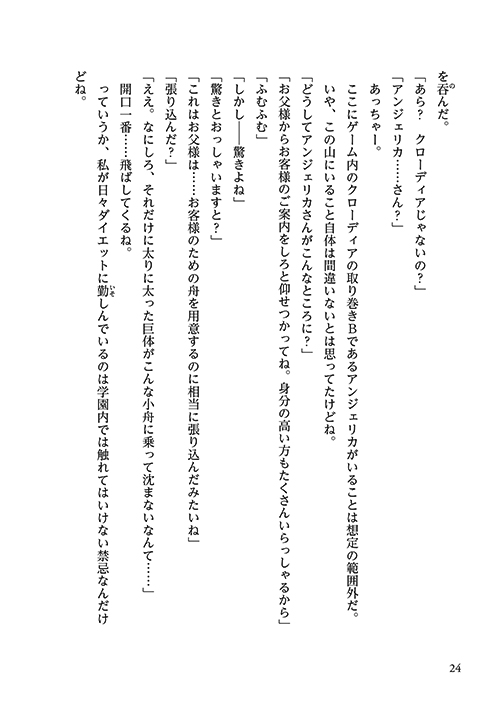 を呑んだ。
「あら？　クローディアじゃないの？」
「アンジェリカ……さん？」
　あっちゃー。
　ここにゲーム内のクローディアの取り巻きＢであるアンジェリカがいることは想定の範囲外だ。
　いや、この山にいること自体は間違いないとは思ってたけどね。
「どうしてアンジェリカさんがこんなところに？」
「お父様からお客様のご案内をしろと仰せつかってね。身分の高い方もたくさんいらっしゃるから」
「ふむふむ」
「しかし――驚きよね」
「驚きとおっしゃいますと？」
「これはお父様は……お客様のための舟を用意するのに相当に張り込んだみたいね」
「張り込んだ？」
「ええ。なにしろ、それだけに太りに太った巨体がこんな小舟に乗って沈まないなんて……」
　開口一番……飛ばしてくるね。
　っていうか、私が日々ダイエットに勤しんでいるのは学園内では触れてはいけない禁忌なんだけ
どね。
24